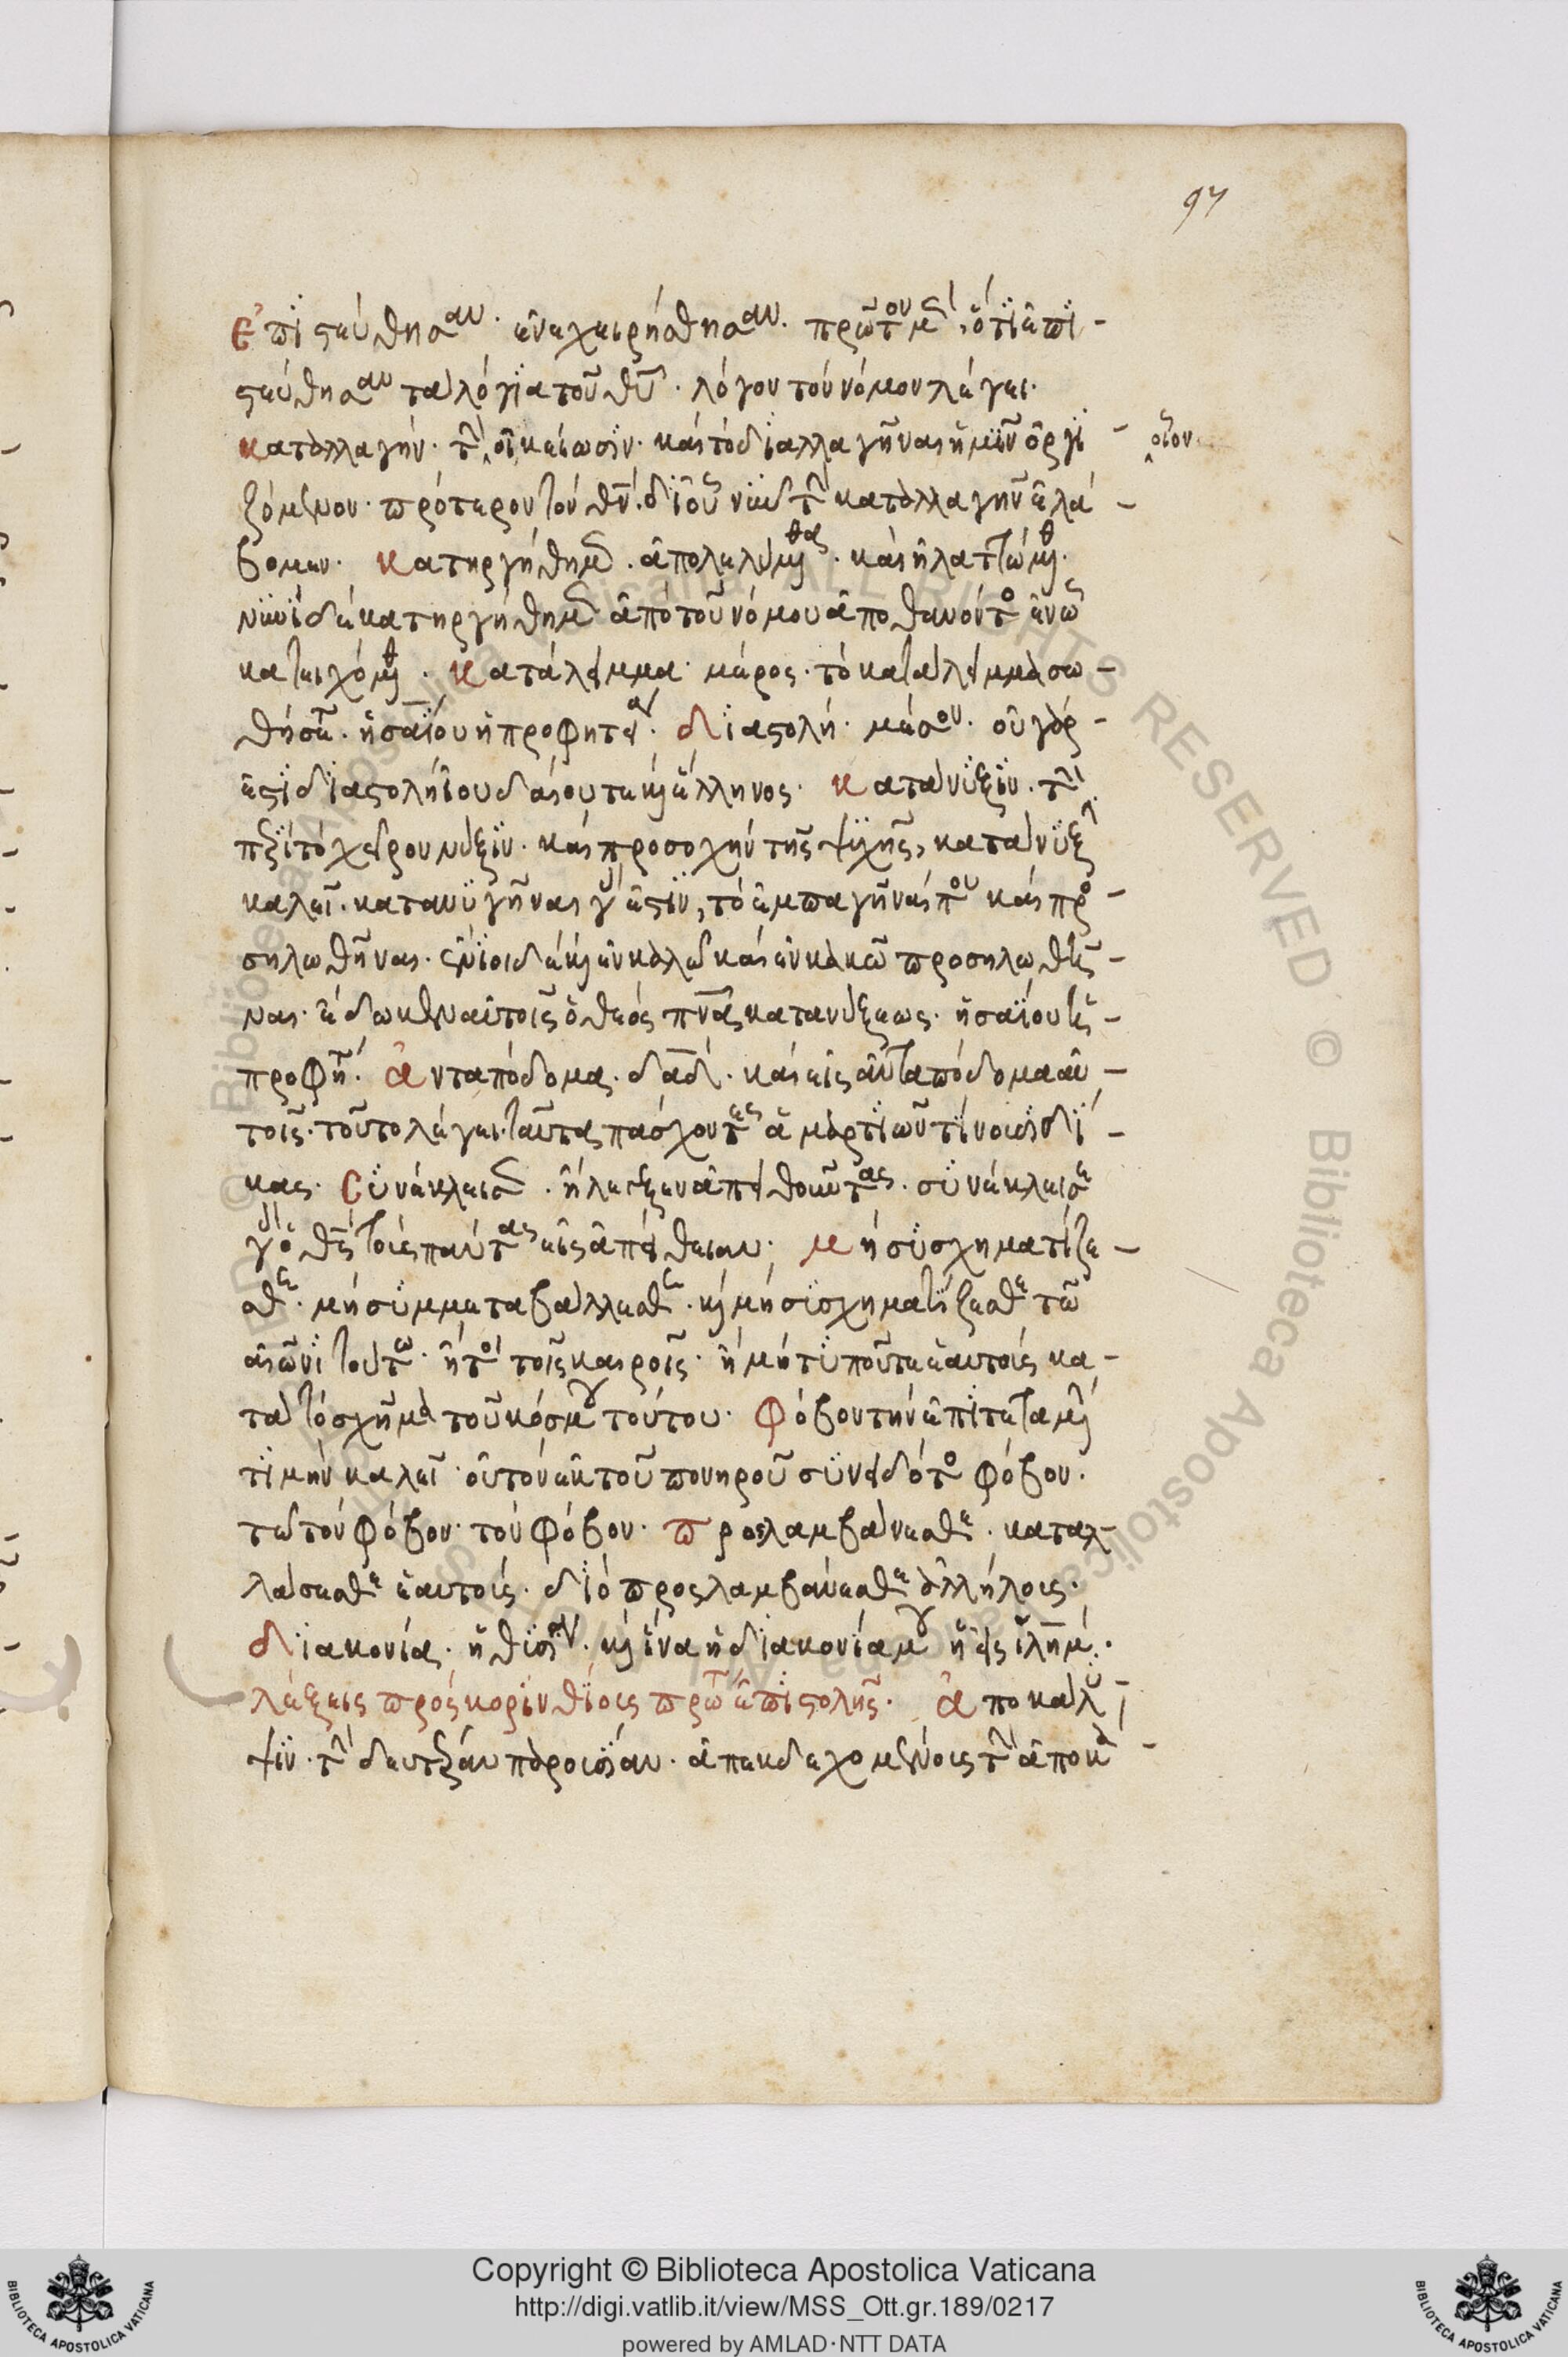 97
Ἐπιστεύθησαν. ἐνεχειρήσθησαν. πρῶτον μὲν, ὅτι ἐπι-
στεύθησαν τὰ λόγια τοῦ θυ. λόγον τὸν νόμον λέγει.
καταλλαγήν. τὴν οἰκείωσιν. καὶ τὸ διαλλαγῆναι ἡμῖν ὀργι-
οἷον
ζόμενον πρότερον τὸν θν. δι' οὗ νῦν τὴν καταλλαγὴν ἐλά-
βομεν. κατηργήθημεν. ἀπολελύμεθα. καὶ
νυνὶ δὲ κατηργήθημεν ἀπὸ τοῦ νόμου ἀποθανόντος ἐν ᾧ
κατειχόμεθα. κατάλειμμα. μέρος. τὸ κατάλειμμα σω-
θήσεται. ἡσαΐου ἡ προφητεία. διαστολή. μέσον. οὐ γὰρ-
ἐστὶ διαστολὴ ἰουδαίου τε κ ἕλληνος. κατάνυξιν. τὴν
περὶ τὸ χεῖρον νεῦξιν. καὶ προσοχὴν τῆς ψυχῆς, κατάνυξιν
καλεῖ. κατανυγῆναι γάρ ἐστιν, τὸ ἐμπαγῆναί που καὶ προ-
σηλωθῆναι. κ ἐν καλῶ καὶ ἐν κακῶ προσηλωθῆ-
ναι. ἔδωκεν αὐτοῖς ὁ θεὸς πνα κατανύξεως. ἡσαΐου τῆς-
προφητ. ἀνταπόδομα. δαδ. καὶ εἰς ἀνταπόδομα αὐ-
τοῖς. τοῦτο λέγει. ταῦτα πάσχοντες ἁμαρτιῶν τίνουσι δί-
κας. συνέκλεισεν. ἤλεγξεν ἀπειθοῦντας. συνέκλεισε
γὰρ ὁ θς τοὺς πάντας εἰς ἀπείθειαν. μὴ συσχηματίζε-
σθε. μὴ συμμεταβάλλεσθε. κ μὴ συσχηματίζεσθε τῶ
αἰῶνι τούτω. ἤτοι τοῖς καιροῖς. ἢ μὴ τυποῦτε ἑαυτοὺς κα-
τὰ τὸ σχῆμα τοῦ κόσμου τούτου. φόβον τὴν ἐπιτεταμένην
τιμὴν καλεῖ. οὐ τὸν ἐκ τοῦ πονηροῦ συνειδότος φόβον.
τῶ τὸν φόβον. τὸν φόβον. προσλαμβάνεσθε. καταλ-
λάσσεσθε ἑαυτούς. διὸ προσλαμβάνεσθε ἀλλήλους.
διακονία. ἡ θυσία. κ ἵνα ἡ διακονία μου ἡ εἰς ἱλημ.
λέξεις πρὸς κορινθίους πρώτης ἐπιστολῆς. ἀποκάλυ-
ψιν. τὴν δευτέραν παρουσίαν. ἀπεκδεχομένους τὴν ἀποκά-
Copyright © Biblioteca Apostolica Vaticana
http://digi.vatlib.it/view/MSS_Ott.gr.189/0217
powered by AMLAD·NTT DATA